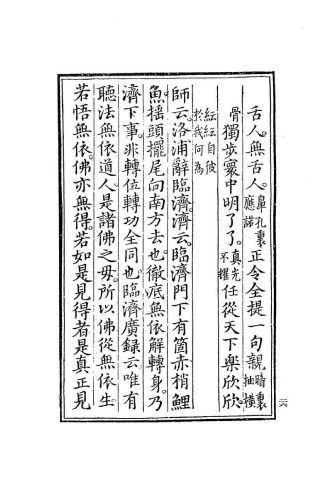 舌人。無舌人。鼻孔裏應諾正令全提一句親。暗裏抽橫
骨獨步寰中明了了。真光不耀任從天下樂欣欣。
紜紜自彼於我何為
師云。洛浦辭臨濟。濟云。臨濟門下有箇赤梢鯉
魚。搖頭擺尾向南方去也。徹底無依解轉身。乃
濟下事。非轉位轉功全同也。臨濟廣錄云。唯有
聽法無依道人。是諸佛之母。所以佛從無依生。
若悟無依。佛亦無得。若如是見得者。是真正見
二六